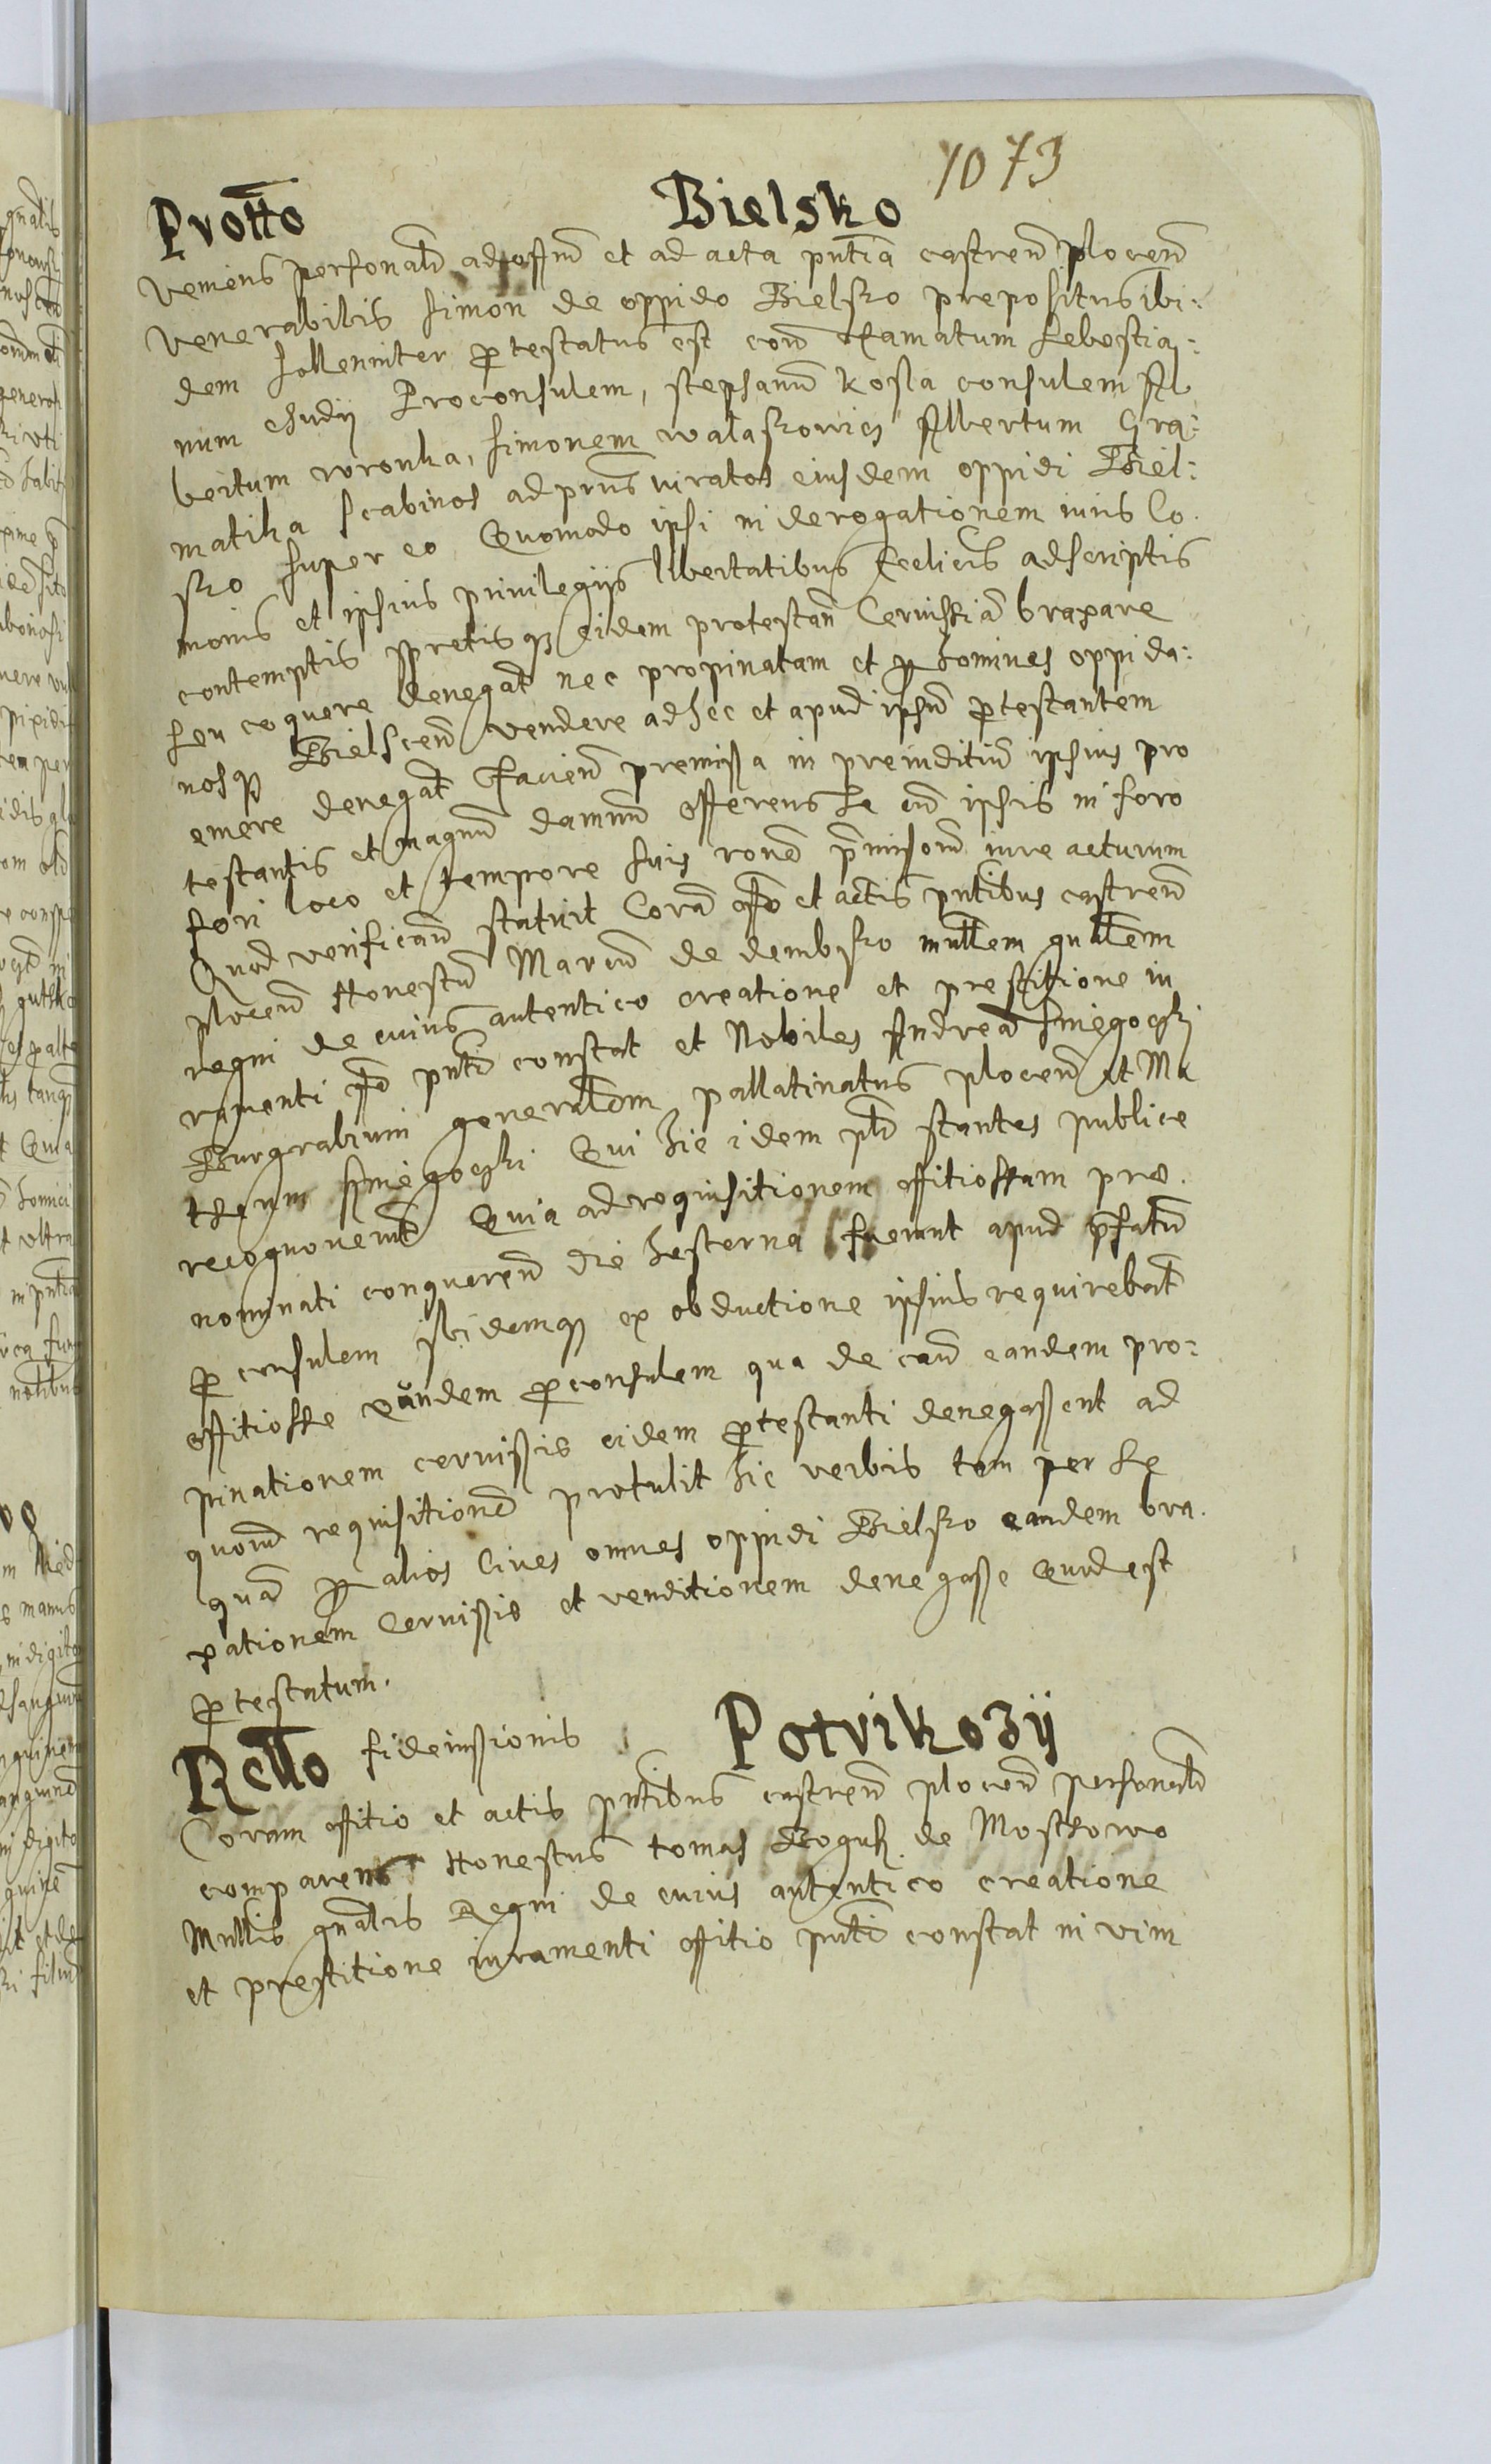 1073
Protto Bielsko
Veniens personalr ad offm et ad acta pntia castren plocen
Venerabilis Simon de oppido Bielsko prepositus ibi:
dem sollenniter ptestatus est con ffamatum Sebestia:
num chudy Proconsulem, stephanu kosla consulem Al
bertum wronka, Simonem walaskowicz Albertum Gra:
matika scabinos ad pns iuratos eiusdem oppidi Biel:
sko super eo Quomodo ipsi in derogationem iuris co
monis et ipsius privilegijs libertatibus Ecclicis adscriptis
contemptis spretisq eidem protestan Cervissia braxare
seu coquere denegat nec propinatam et p homines oppida:
nosq Bielscen vendere ad hec et apud ipsu ptestantem
emere denegat ffacien premissa in preiuditiu ipsius pro
testantis et magnu damnu offerens se cu ipsis in foro
fori loco et tempore suis rone pmissoru iure acturum
Quod verifican statuit Cora offo et actis pntibus castren
plocen Honestu Marcu de dembsko mnllem gnalem
regni de cuius autentico creatione et prestitione iu
ramenti offo pnti constat et Nobiles Andrea smiegoczki
Burgrabium generalem pallatinatus plocen et Ma
theum smiegoczki Qui hic idem plr stantes publice
recognoverut Quia ad requisitionem offitiossam pre
nominati conqueren die hesterna fuerunt apud pfatu
pconsulem ibidemq ex obductione ipsius requirebat
offitiosse eundem pconsulem qua de cau eandem pro:
pinationem cervissie eidem ptestanti denegassent ad
quoru requisitione protulit hic verbis tam per se
qua p alios Cives omnes oppidi Bielsko eandem bra
xationem Cervissie et venditionem denegasse Quod est
ptestatum.
Rello fideiussionis Potrikozy
Coram offitio et actis pntibus castren plocen personalr
comparens Honestus tomas Bogusz de Mochowo
Mnllis gnalis Regni de cuius autentico creatione
et prestitione iuramenti offitio pnti constat in vim